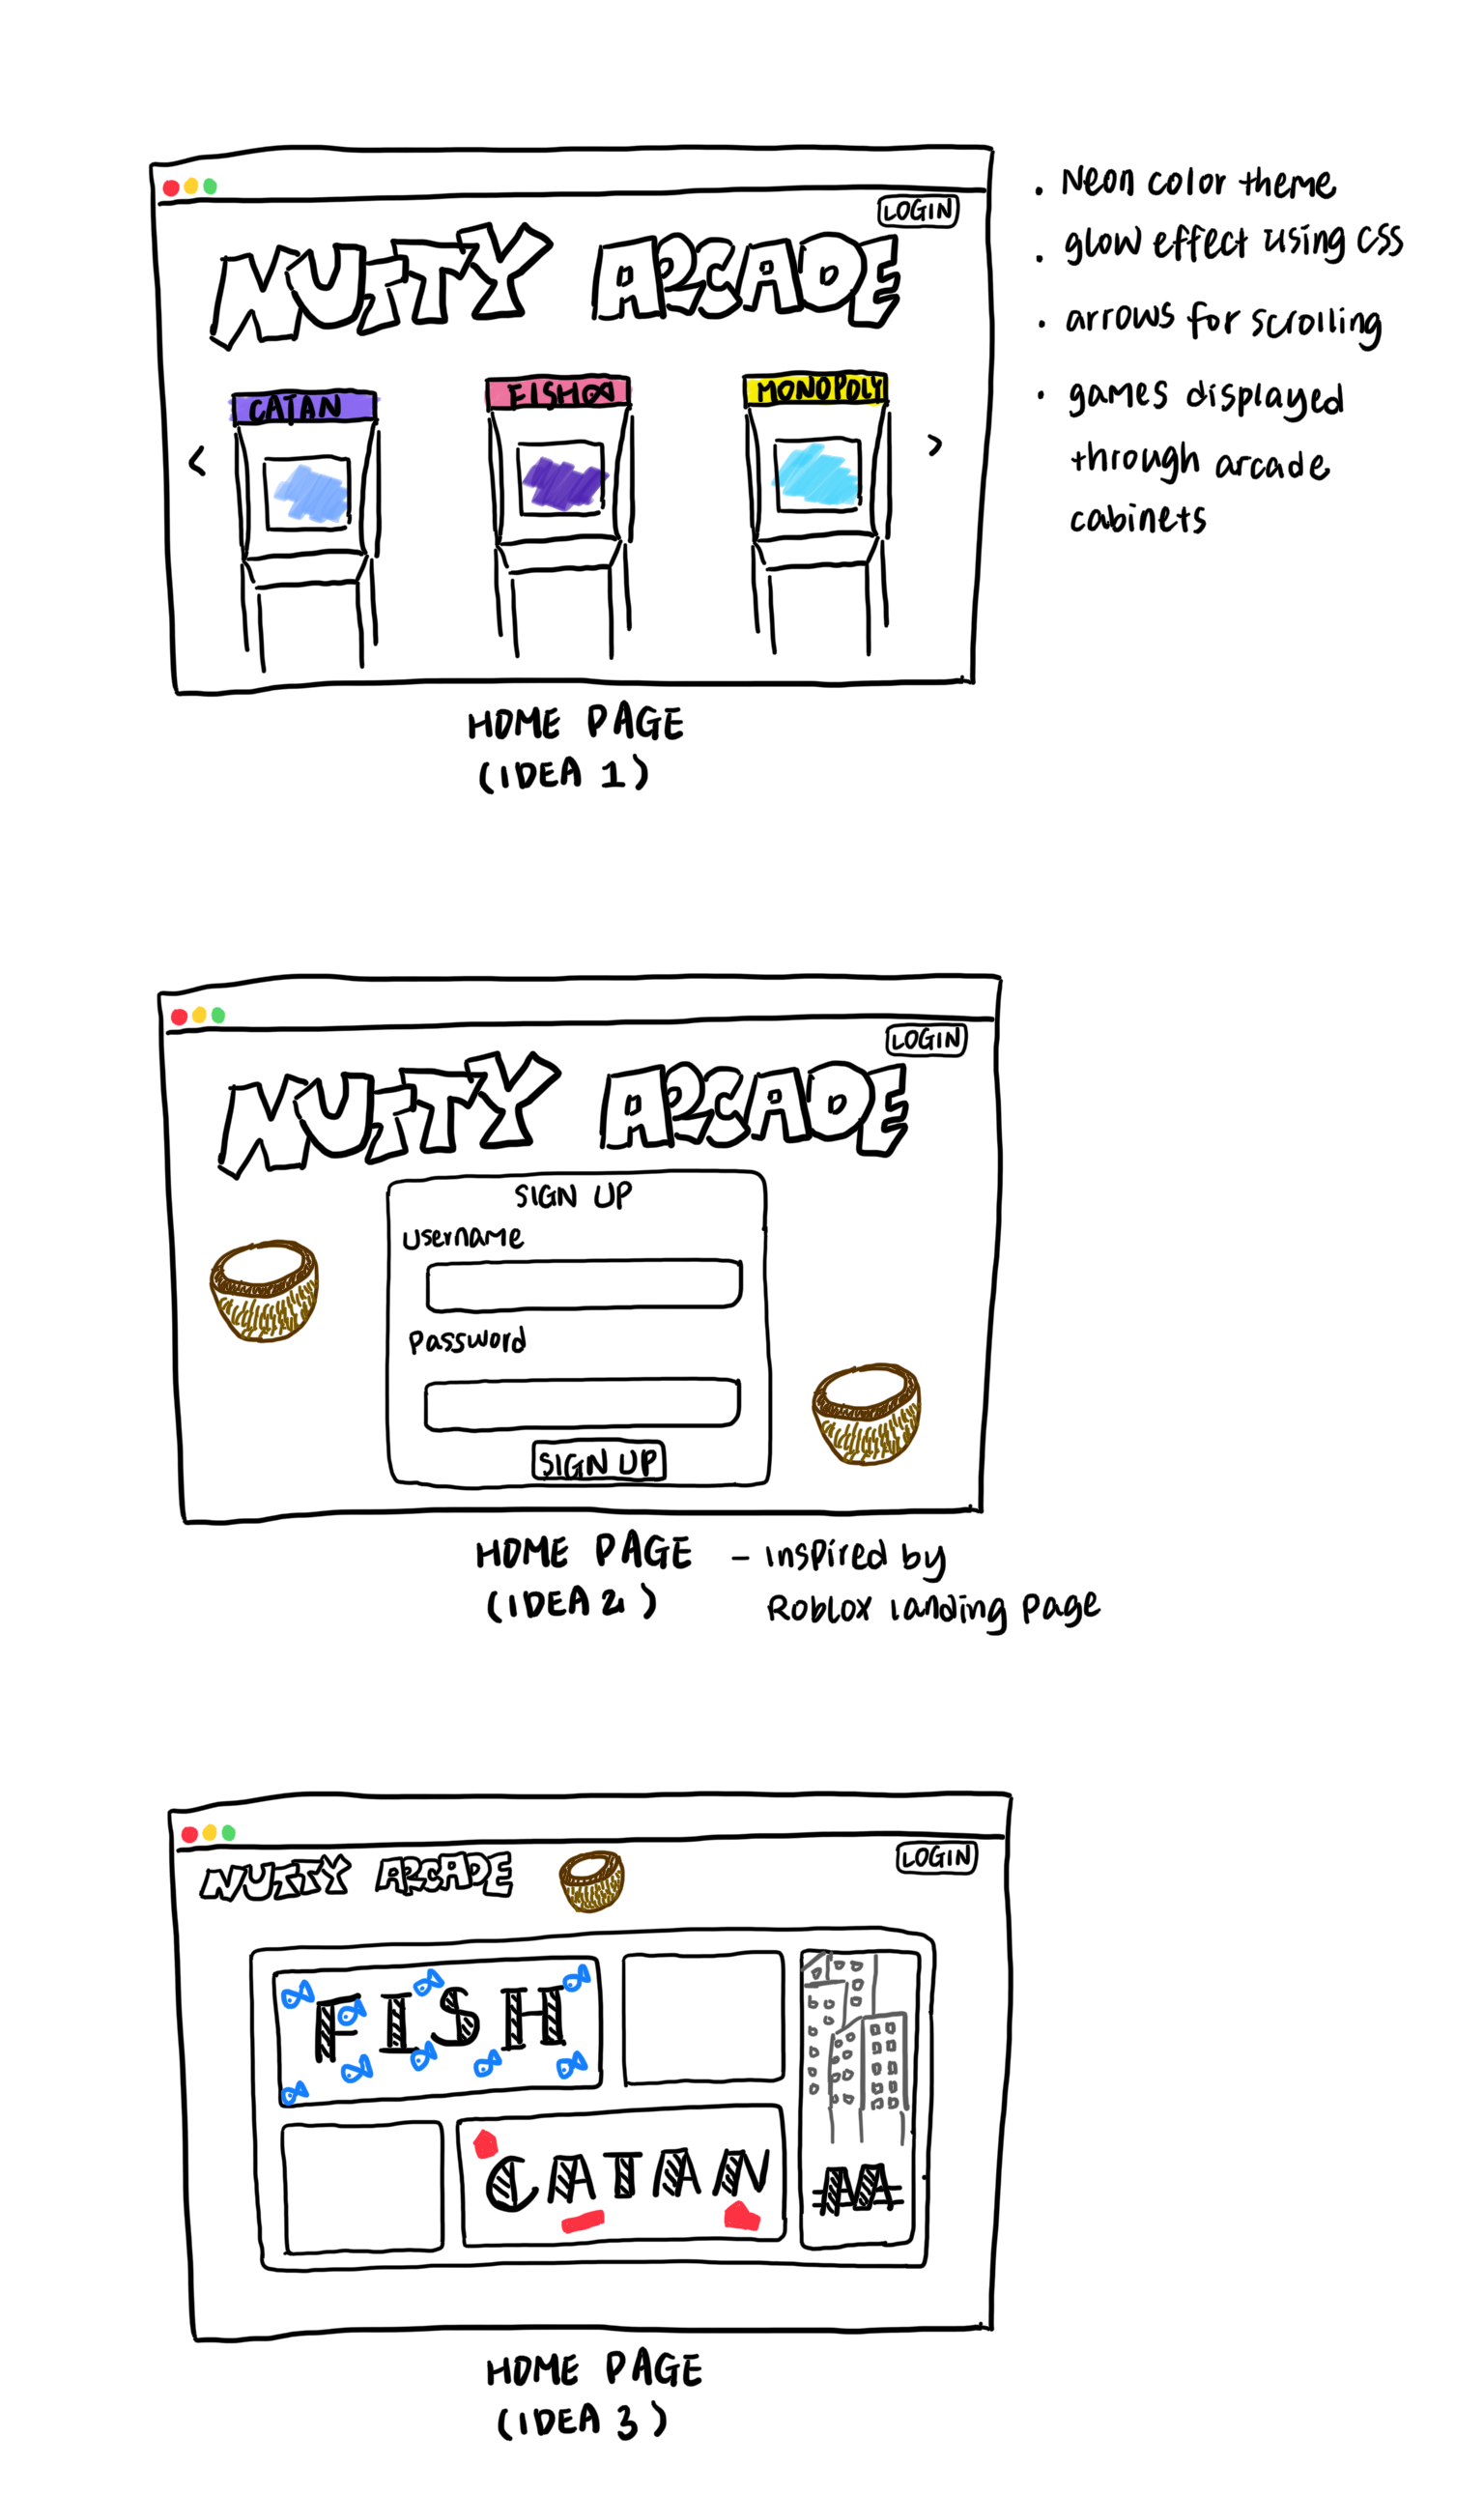 LOGIN
NUTTY ARCADE
CATAN
FISH
MONOPOLY
<
>
• Neon color theme
• glow effect using CSS
• arrows for scrolling
• games displayed
through arcade
cabinets
HOME PAGE
(IDEA 1)
LOGIN
NUTTY ARCADE
SIGN UP
Username
Password
SIGN UP
HOME PAGE - inspired by
(IDEA 2) Roblox landing page
NUTTY ARCADE
LOGIN
FISH
CATAN
HOME PAGE
(IDEA 3)